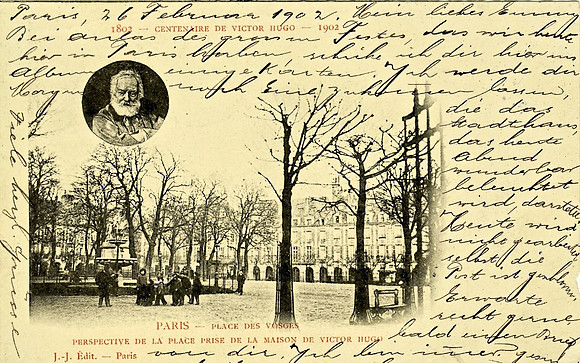 Paris, 26 Februar 1902. Mein liebes Emmy
1802 — CENTENAIRE DE VICTOR HUGO — 1902
Bei an des grossen Festes, das wir heute
hier in Paris haben, schicke ich dir hier ins
Album einige Karten. Ich werde dir
noch Eine lassen,
die das
Stadthaus,
das heute
Abend
wunderbar
beleuchtet
wird, darstellt
Heute wird
nicht gearbeitet
selbst die
Post ist geschlossen
Erwarte
recht gerne
bald einen
PARIS — PLACE DES VOSGES
PERSPECTIVE DE LA PLACE PRISE DE LA MAISON DE VICTOR HUGO
J.-J. Édit. — Paris
von dir. Ich bin
Viele herzl. Grüsse